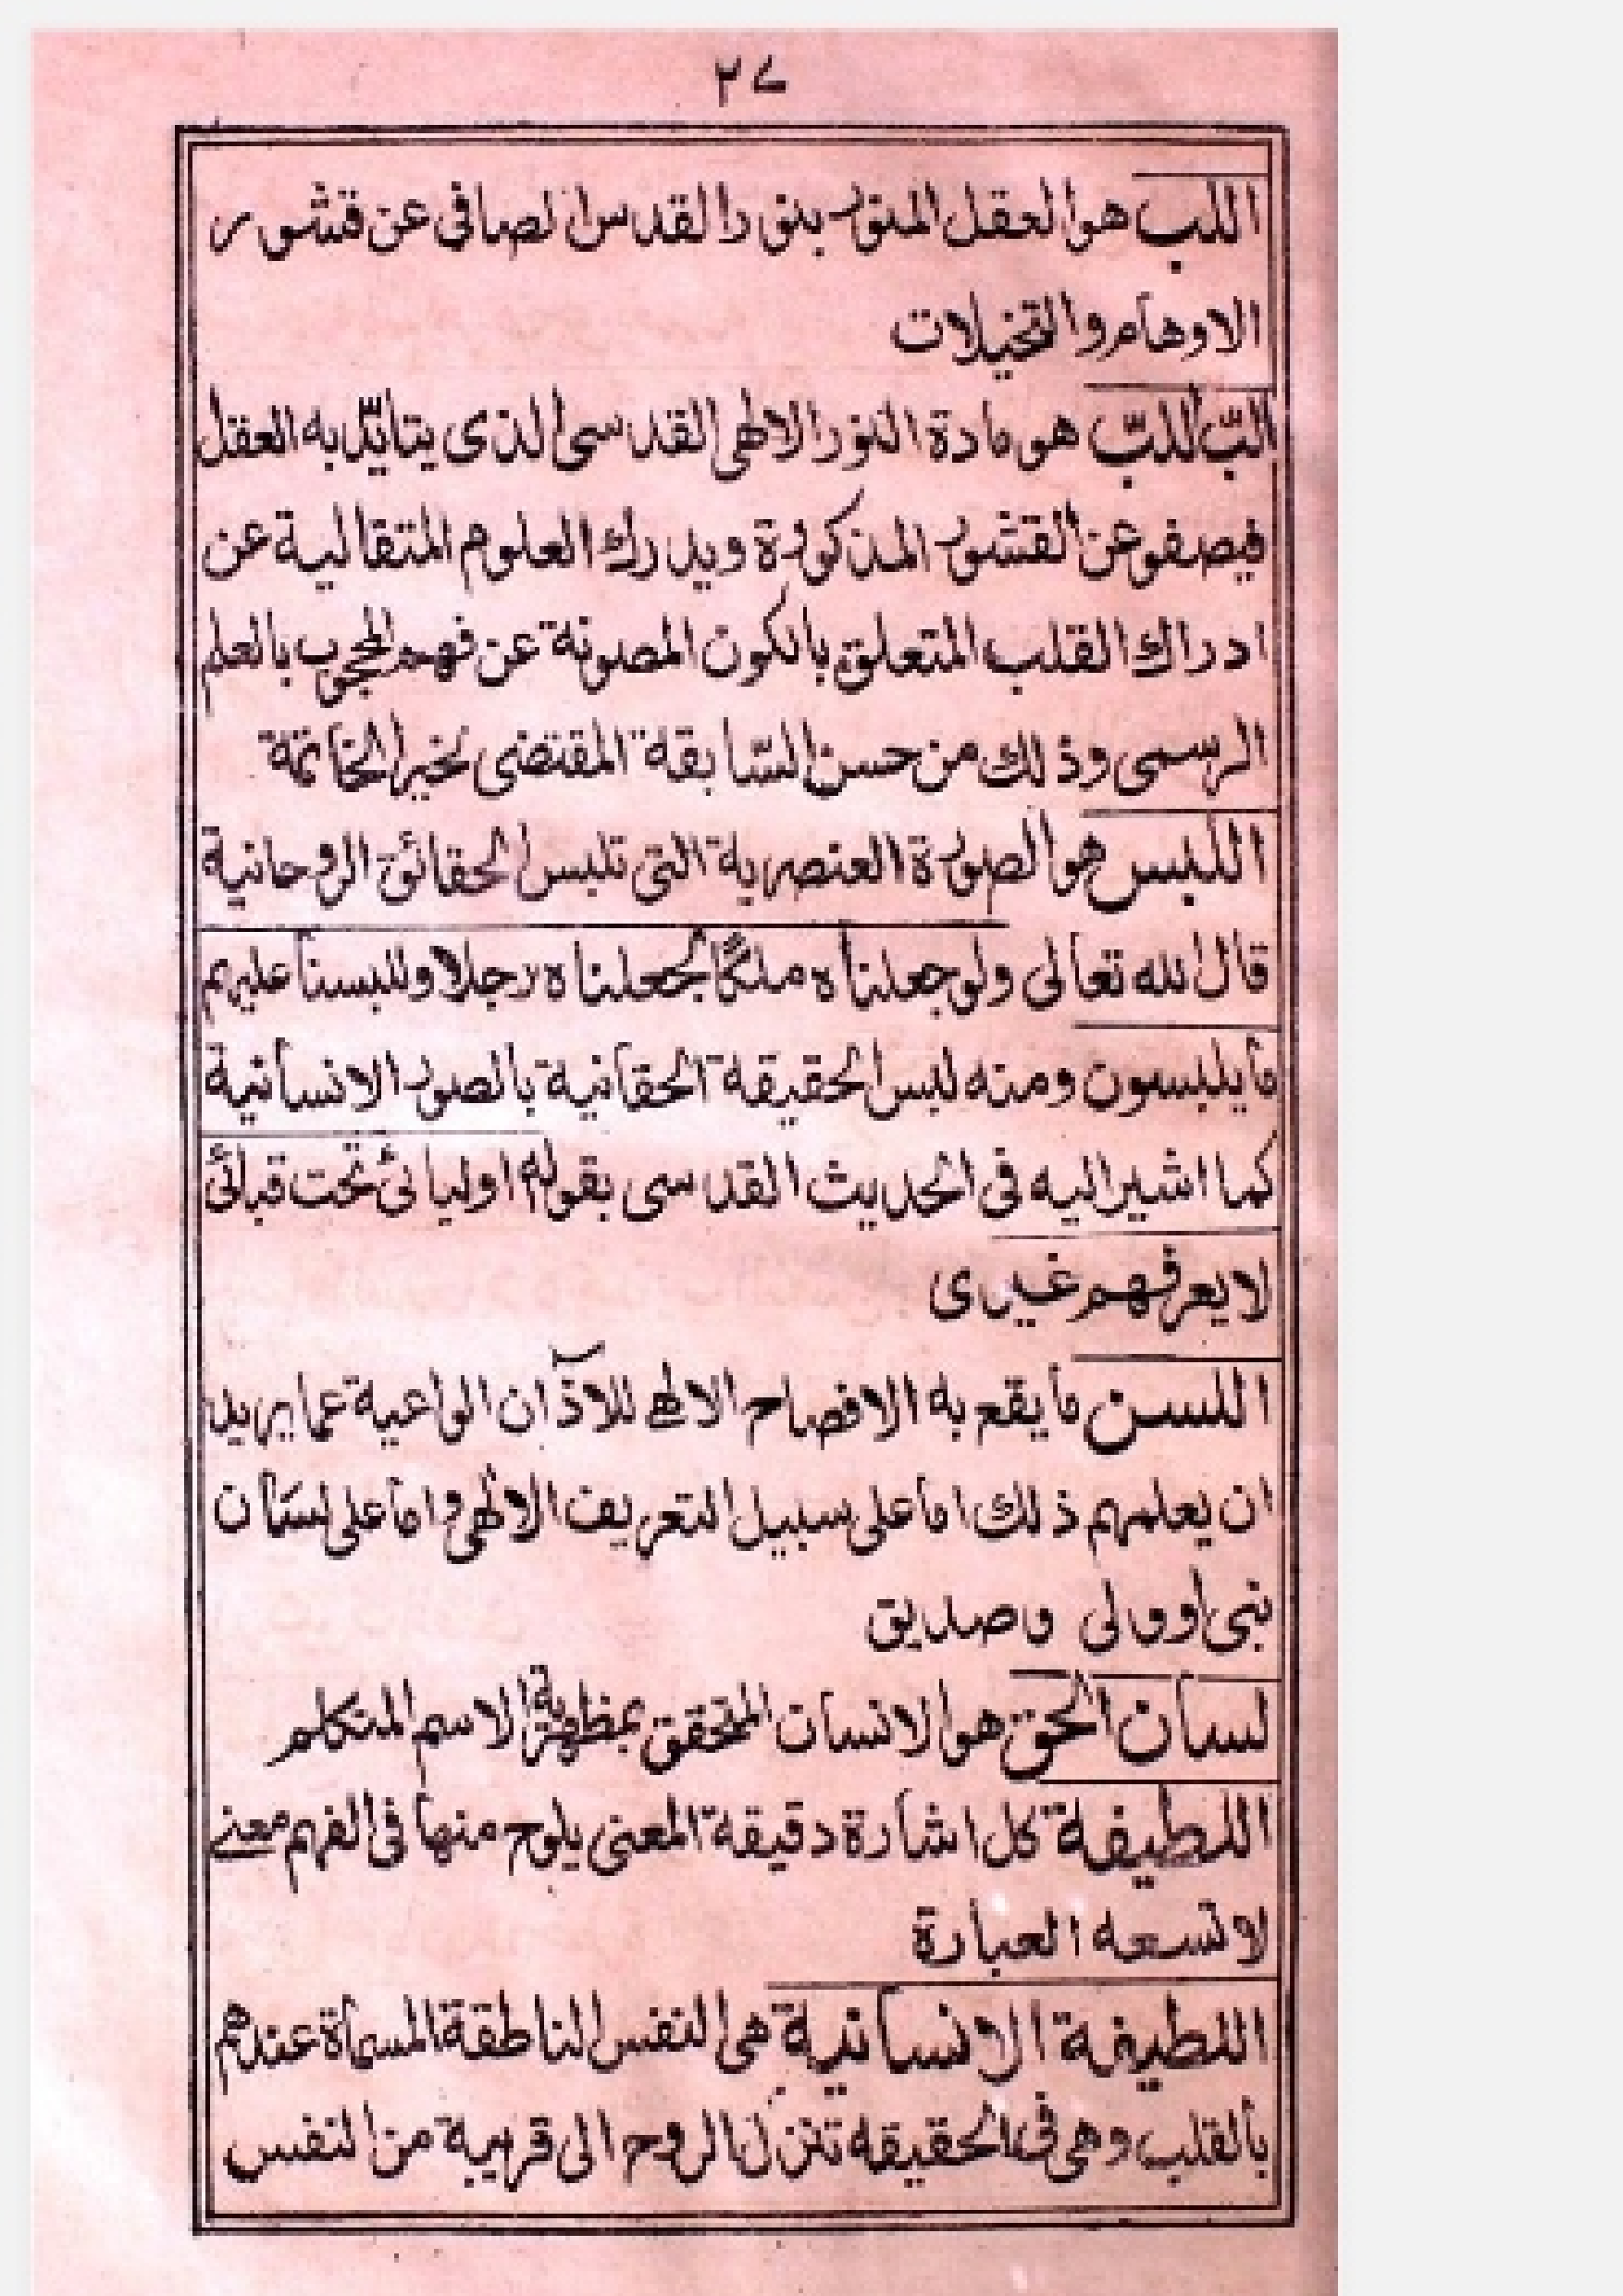 ٢٧
اللب هو العقل المنور بنور القدس الصافى عن قشور
الاوهام والتخيلات
لبّ اللبّ هو مادة النور الالهى القدسى الذى يتايّد به العقل
فيصفو عن القشور المذكورة ويدرك العلوم المتقالية عن
ادراك القلب المتعلق بالكون المصونة عن فهم المحجوب بالعلم
الرسمى وذلك من حسن السّابقة المقتضى لخير الخاتمة
اللبس هو الصورة العنصرية التى تلبس الحقائق الروحانية
قال الله تعالى ولو جعلناه ملكًا لجعلناه رجلا وللبسنا عليهم
ما يلبسون ومنه لبس الحقيقة الحقانية بالصور الانسانية
كما اشير اليه فى الحديث القدسى بقوله اوليائى تحت قبائى
لا يعرفهم غيرى
اللسن ما يقع به الافصاح الالهى للآذان الواعية عما يريد
ان يعلمهم ذلك اما على سبيل التعريف الالهى واما على لسان
نبى او ولى وصديق
لسان الحق هو الانسان المتحقق بمظهرية الاسم المتكلم
اللطيفة كل اشارة دقيقة المعنى يلوح منها فى الفهم معنے
لا تسعه العبارة
اللطيفة الانسانية هى النفس الناطقة المسماة عندهم
بالقلب وهى فى الحقيقه تنزل الروح الى قريبة من النفس